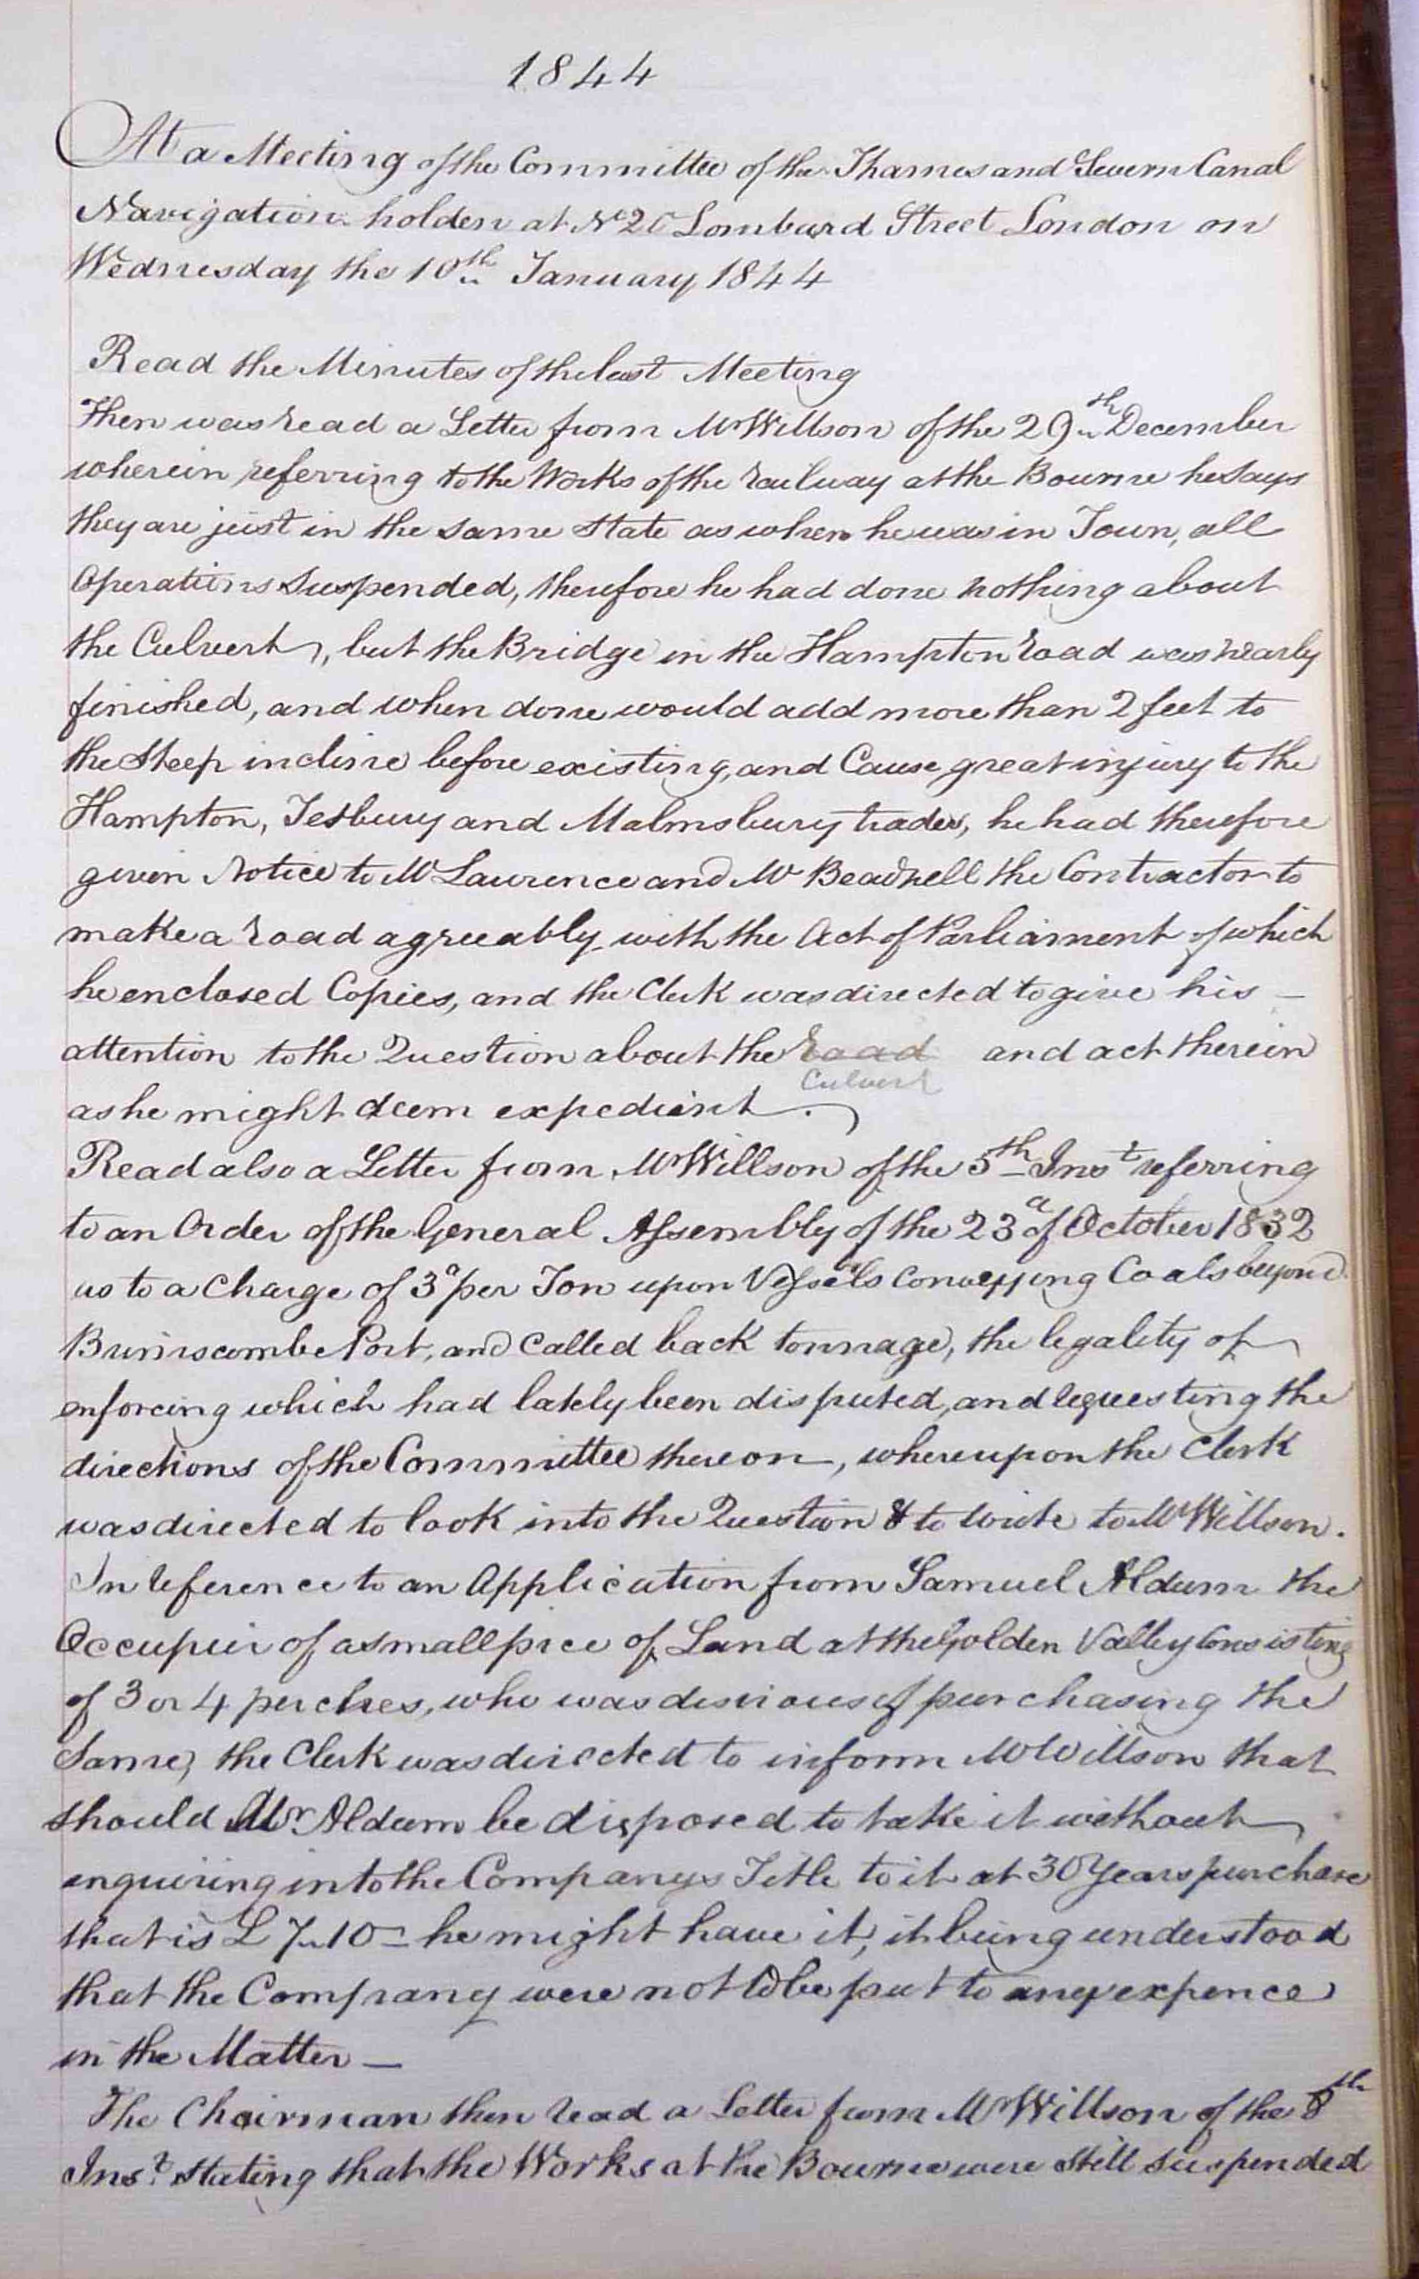 1844
At a Meeting of the Committee of the Thames and Severn Canal
Navigation holden at No 20 Lombard Street London on
Wednesday the 10th January 1844
Read the Minutes of the last Meeting
Then was read a Letter from Mr Willson of the 29th December
wherein referring to the Works of the railway at the Bourne he says
they are just in the same state as when he was in Town, all
Operations Suspended, therefore he had done nothing about
the Culvert, but the Bridge in the Hampton road was nearly
finished, and when done would add more than 2 feet to
the steep incline before existing, and Cause great injury to the
Hampton, Tetbury and Malmsbury trades, he had therefore
given Notice to Mr Laurence and Mr Beadnell the Contractor to
make a road agreeably with the Act of Parliament of which
he enclosed Copies, and the Clerk was directed to give his –
attention to the Question about the road and act therein
Culvert
as he might deem expedient.
Read also a Letter from Mr Willson of the 5th Inst referring
to an Order of the General Assembly of the 23d of October 1832
as to a Charge of 3d per Ton upon Vessels Conveying Coals beyond
Brimscombe Port, and Called back tonnage, the legality of
enforcing which had lately been disputed, and requesting the
directions of the Committee thereon, whereupon the Clerk
was directed to look into the Question & to write to Mr Willson.
In reference to an Application from Samuel Aldum the
Occupier of a small piece of Land at the Golden Valley Consisting
of 3 or 4 perches, who was desirous of purchasing the
Same, the Clerk was directed to inform Mr Willson that
should Mr Aldum be disposed to take it without
enquiring into the Companys Title to it at 30 Years purchase
that is £ 7.. 10 – he might have it, it being understood
that the Company were not to be put to any expence
in the Matter –
The Chairman then read a Letter from Mr Willson of the 8th
Inst. stating that the Works at the Bourne were still suspended